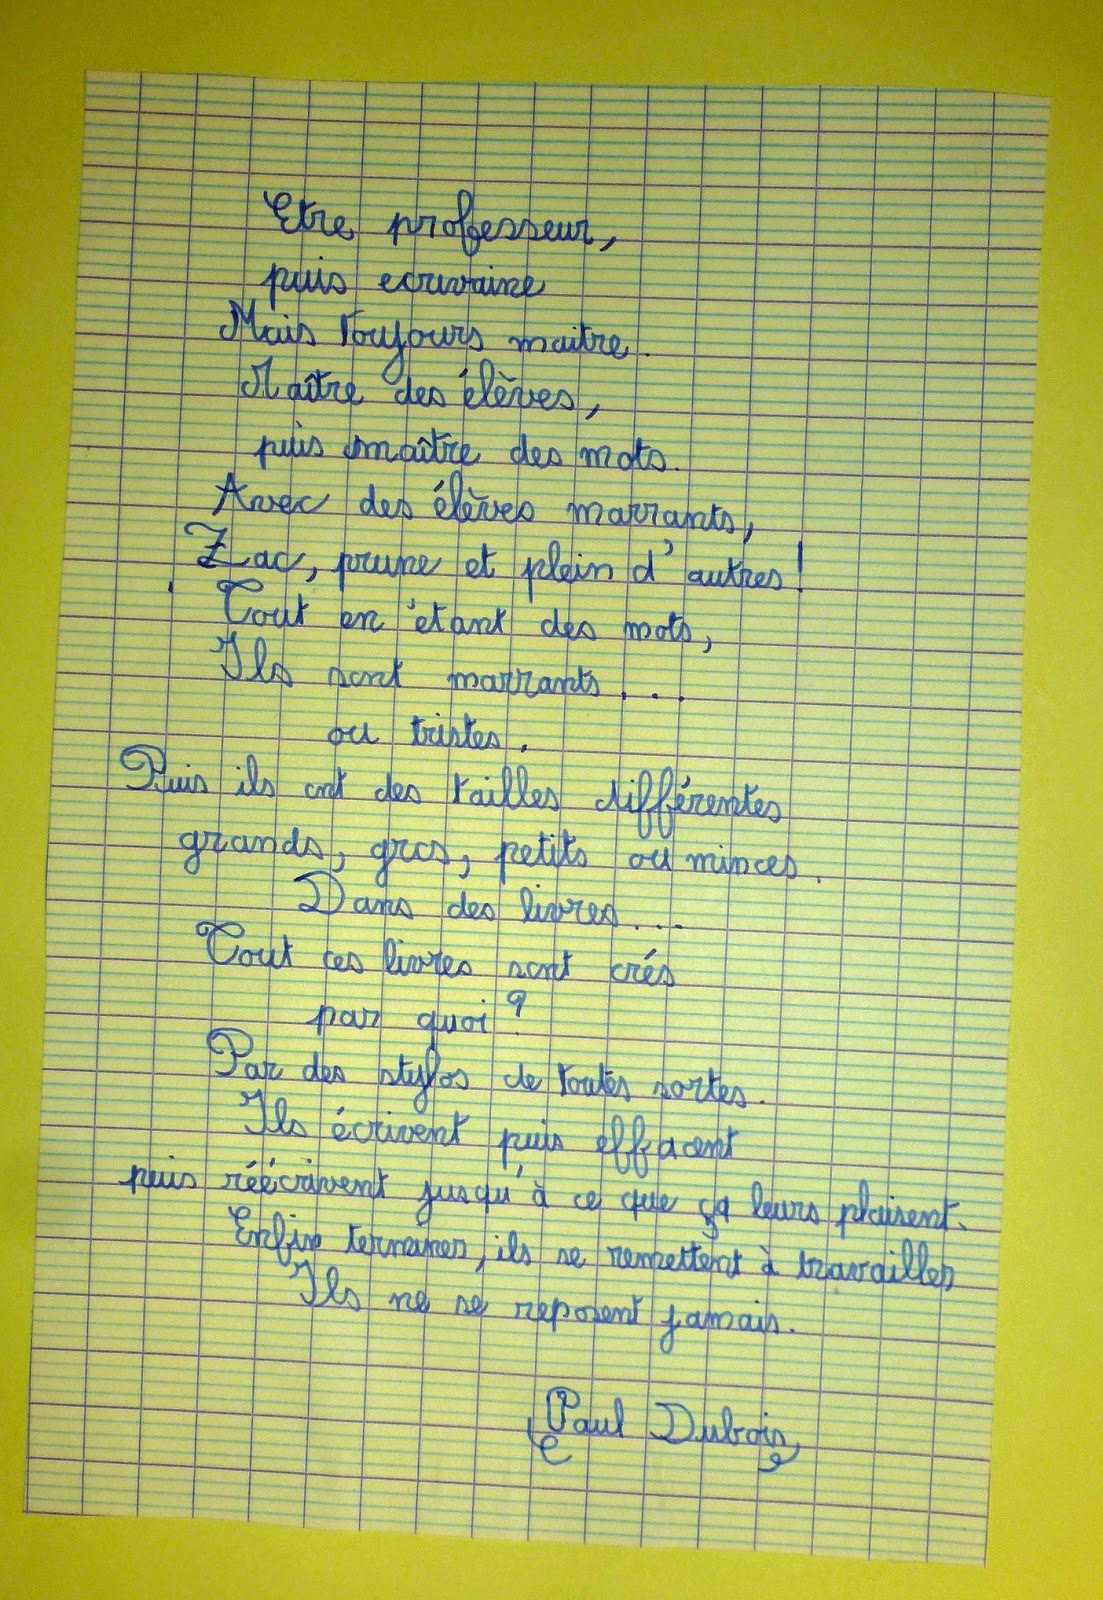 Etre professeur,
puis ecrivaine
Mais toujours maitre.
Maître des élèves,
puis maître des mots.
Avec des élèves marrants,
Zac, prune et plein d'autres!
Tout en étant des mots,
Ils sont marrants...
ou tristes.
Puis ils ont des tailles différentes
grands, gros, petits ou minces.
Dans des livres...
Tout ces livres sont crés
par quoi?
Par des stylos de toutes sortes.
Ils écrivent puis effacent
puis réécrivent jusqu'à ce que ça leurs plaisent.
Enfin, ils se remettent à travailler
Ils ne se reposent jamais.
Paul Dubois